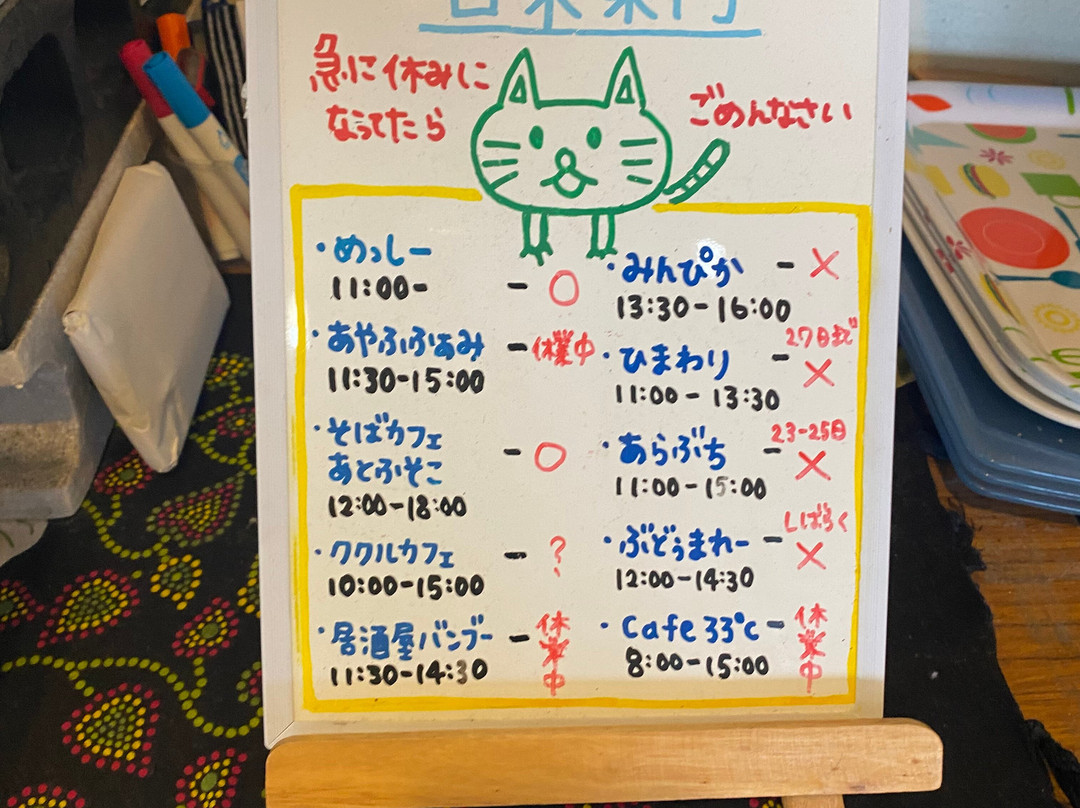 急に休みに
なってたら
ごめんなさい
・めっしー - ○
11:00-
・あやふふぁみ - 休業中
11:30-15:00
・そばカフェ
あとふそこ - ○
12:00-18:00
・ククルカフェ - ?
10:00-15:00
・居酒屋バンブー - 休業中
11:30-14:30
・みんぴか - ×
13:30-16:00
27日まで
・ひまわり - ×
11:00-13:30
23-25日
・あらぶち - ×
11:00-15:00
しばらく
・ぶどぅまれー - ×
12:00-14:30
・Cafe 33℃ - 休業中
8:00-15:00